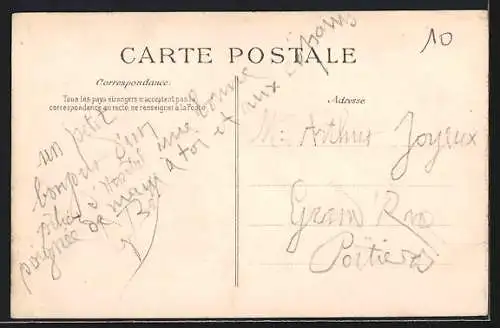 CARTE POSTALE
10
Correspondance.
Tous les pays étrangers n'acceptent pas la
correspondance au recto, se renseigner à la Poste.
Adresse
un petit
bonjour d'un
une bonne
poignée de main à toi et aux
Mr Arthur Joyeux
Grand'Rue
Poitiers